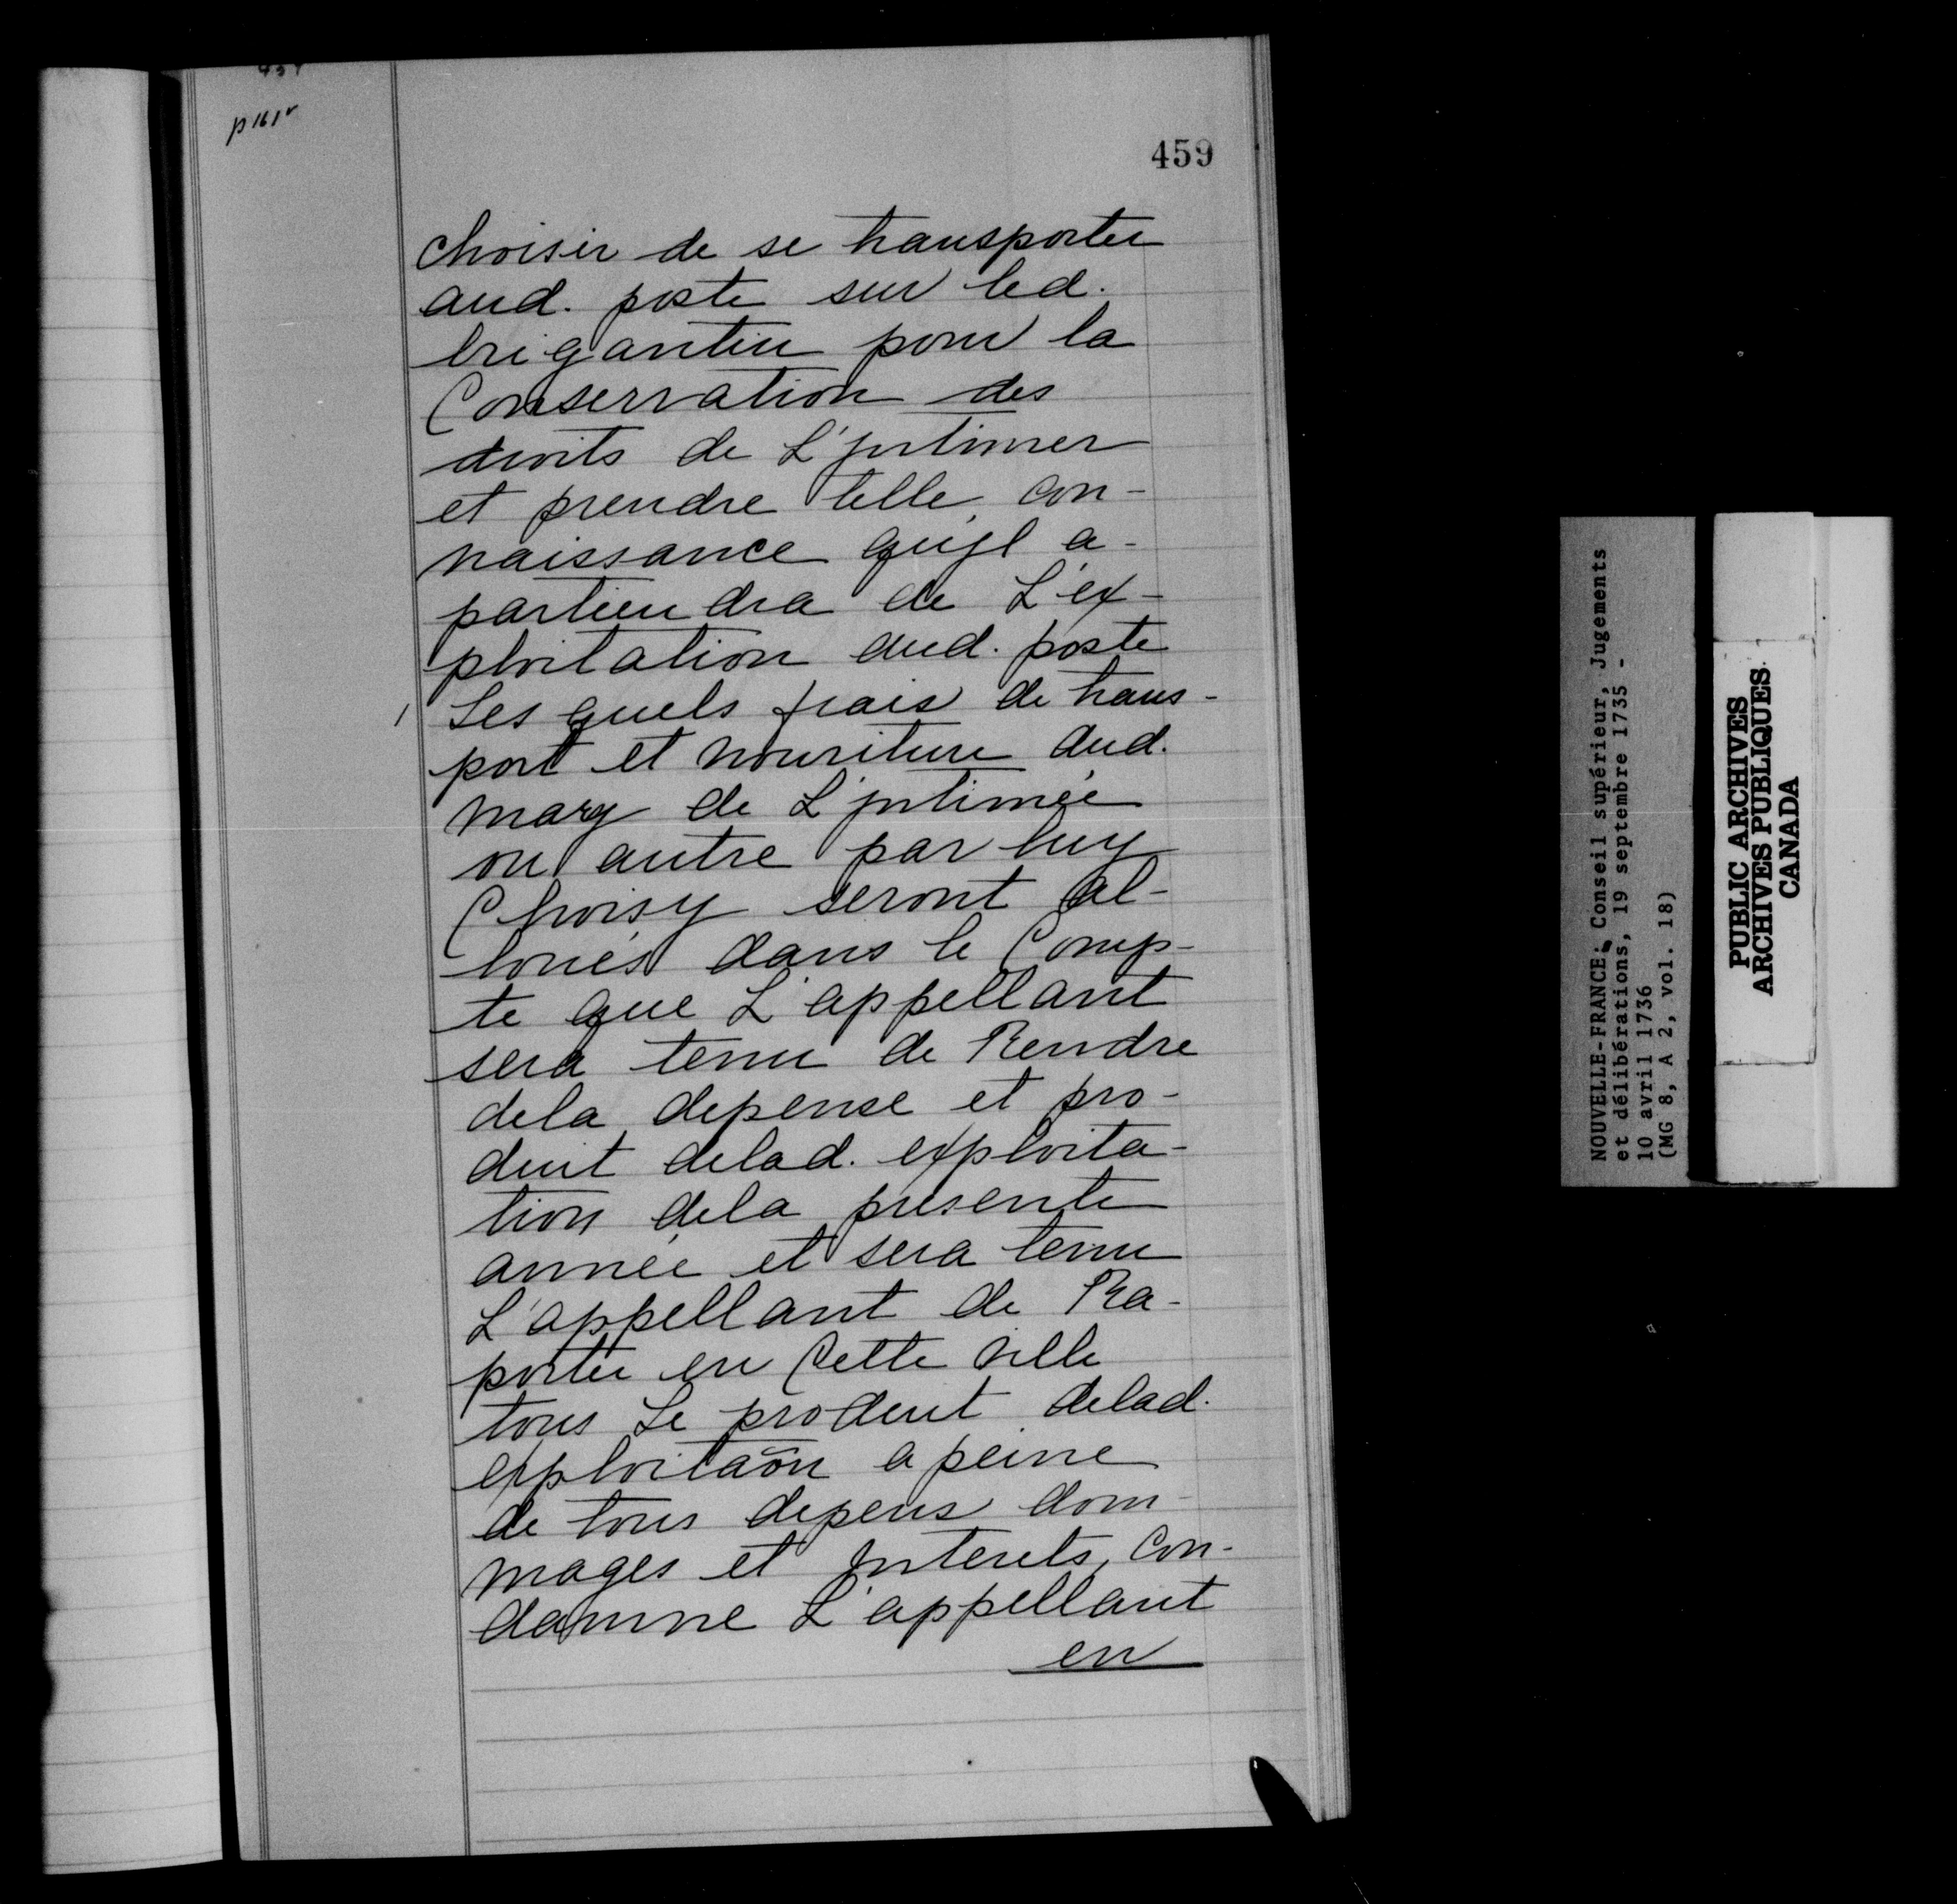 p 161v
459
choisir de se transporter
aud. poste sur led.
brigantin pour la
Conservation des
droits de L'jntimer
et prendre telle con-
naissance qu'jl a-
partiendra de L'ex-
ploitation dud. poste
Les quels frais de trans-
port et nouriture dud.
mary de L'jntimée
ou autre par luy
Choisy seront al-
loués dans le Comp-
te que L'appellant
sera tenu de Rendre
dela depense et pro-
duit delad. exploita-
tion dela presente
année et sera tenu
L'appellant de Ra-
porter en Cette ville
tous Le produit delad.
exploitaõn a peine
de tous depens dom-
mages et jnterets, Con-
damne L'appellant
en
NOUVELLE-FRANCE. Conseil supérieur, Jugements
et délibérations, 19 septembre 1735 -
10 avril 1736
(MG 8, A 2, vol. 18)
PUBLIC ARCHIVES
ARCHIVES PUBLIQUES
CANADA